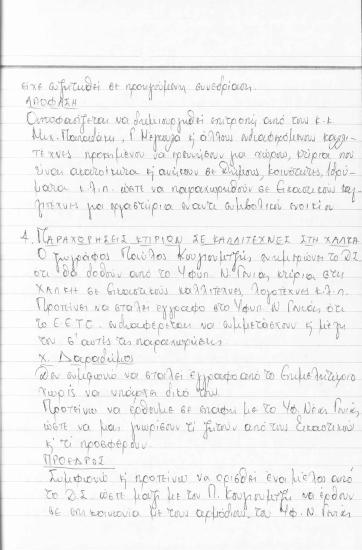 είχε συζητηθεί σε προηγούμενη συνεδρίαση.
ΑΠΟΦΑΣΗ
Αποφασίζεται να δημιουργηθεί επιτροπή από τους κ.κ.
Μιχ. Παπαδάκη, Γ. Μεγαλά ή άλλους ενδιαφερόμενους καλλι-
τέχνες προκειμένου να ερευνήσουν για χώρους, κτίρια που
είναι ακατοίκητα ή ανήκουν σε Δήμους, Κοινότητες, Ιδρύ-
ματα κ.λ.π. ώστε να παραχωρηθούν σε εικαστικούς καλ-
λιτέχνες για εργαστήρια έναντι συμβολικού ενοικίου
4. ΠΑΡΑΧΩΡΗΣΕΙΣ ΚΤΙΡΙΩΝ ΣΕ ΚΑΛΛΙΤΕΧΝΕΣ ΣΤΗ ΧΑΛΚΗ
Ο ζωγράφος Παύλος Κουγιουμτζής ενημερώνει το ΔΣ.
ότι θα δοθούν από το Υφυπ. Ν. Γενιάς, κτίρια στη
ΧΑΛΚΗ σε εικαστικούς καλλιτέχνες, λογοτέχνες κ.λ.π.
Προτείνει να σταλεί έγγραφο στο Υφυπ. Ν. Γενιάς ότι
το ΕΕΤΕ ενδιαφέρεται να συμμετάσχουν κ' μέλη
του σ' αυτές τις παραχωρήσεις.
Χ. Δαραδήμος
Δεν συμφωνώ να σταλεί έγγραφο από το Επιμελητήριο
χωρίς να υπάρχει δικό του.
Προτείνω να έρθουμε σε επαφή με το Υφ. Νέας Γενιάς
ώστε να μας γνωρίσουν τί ζητούν από τους Εικαστικούς
κ' τί προσφέρουν.
ΠΡΟΕΔΡΟΣ
Συμφωνώ κ' προτείνω να ορισθεί ένα μέλος από
το Δ.Σ. ώστε μαζί με τον Π. Κουγιουμτζή να έρθουν
σε επικοινωνία με τους αρμόδιους του Υφ. Ν. Γενιάς